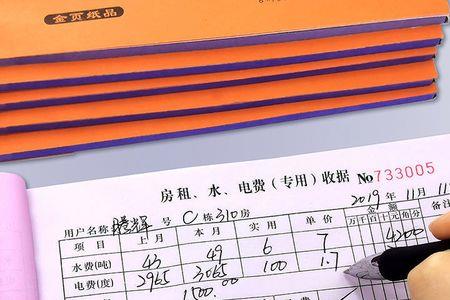 金页纸品
房租、水、电费(专用)收据 No733005
2019年11月11
用户名称 腾辉 号 C栋310房
项目 上月 本月 实用 单价 金额 备注
万千百十元角分
水费(吨) 43 49 6 7 4200
电费(度) 2965 3065 100 1.7
1500.00